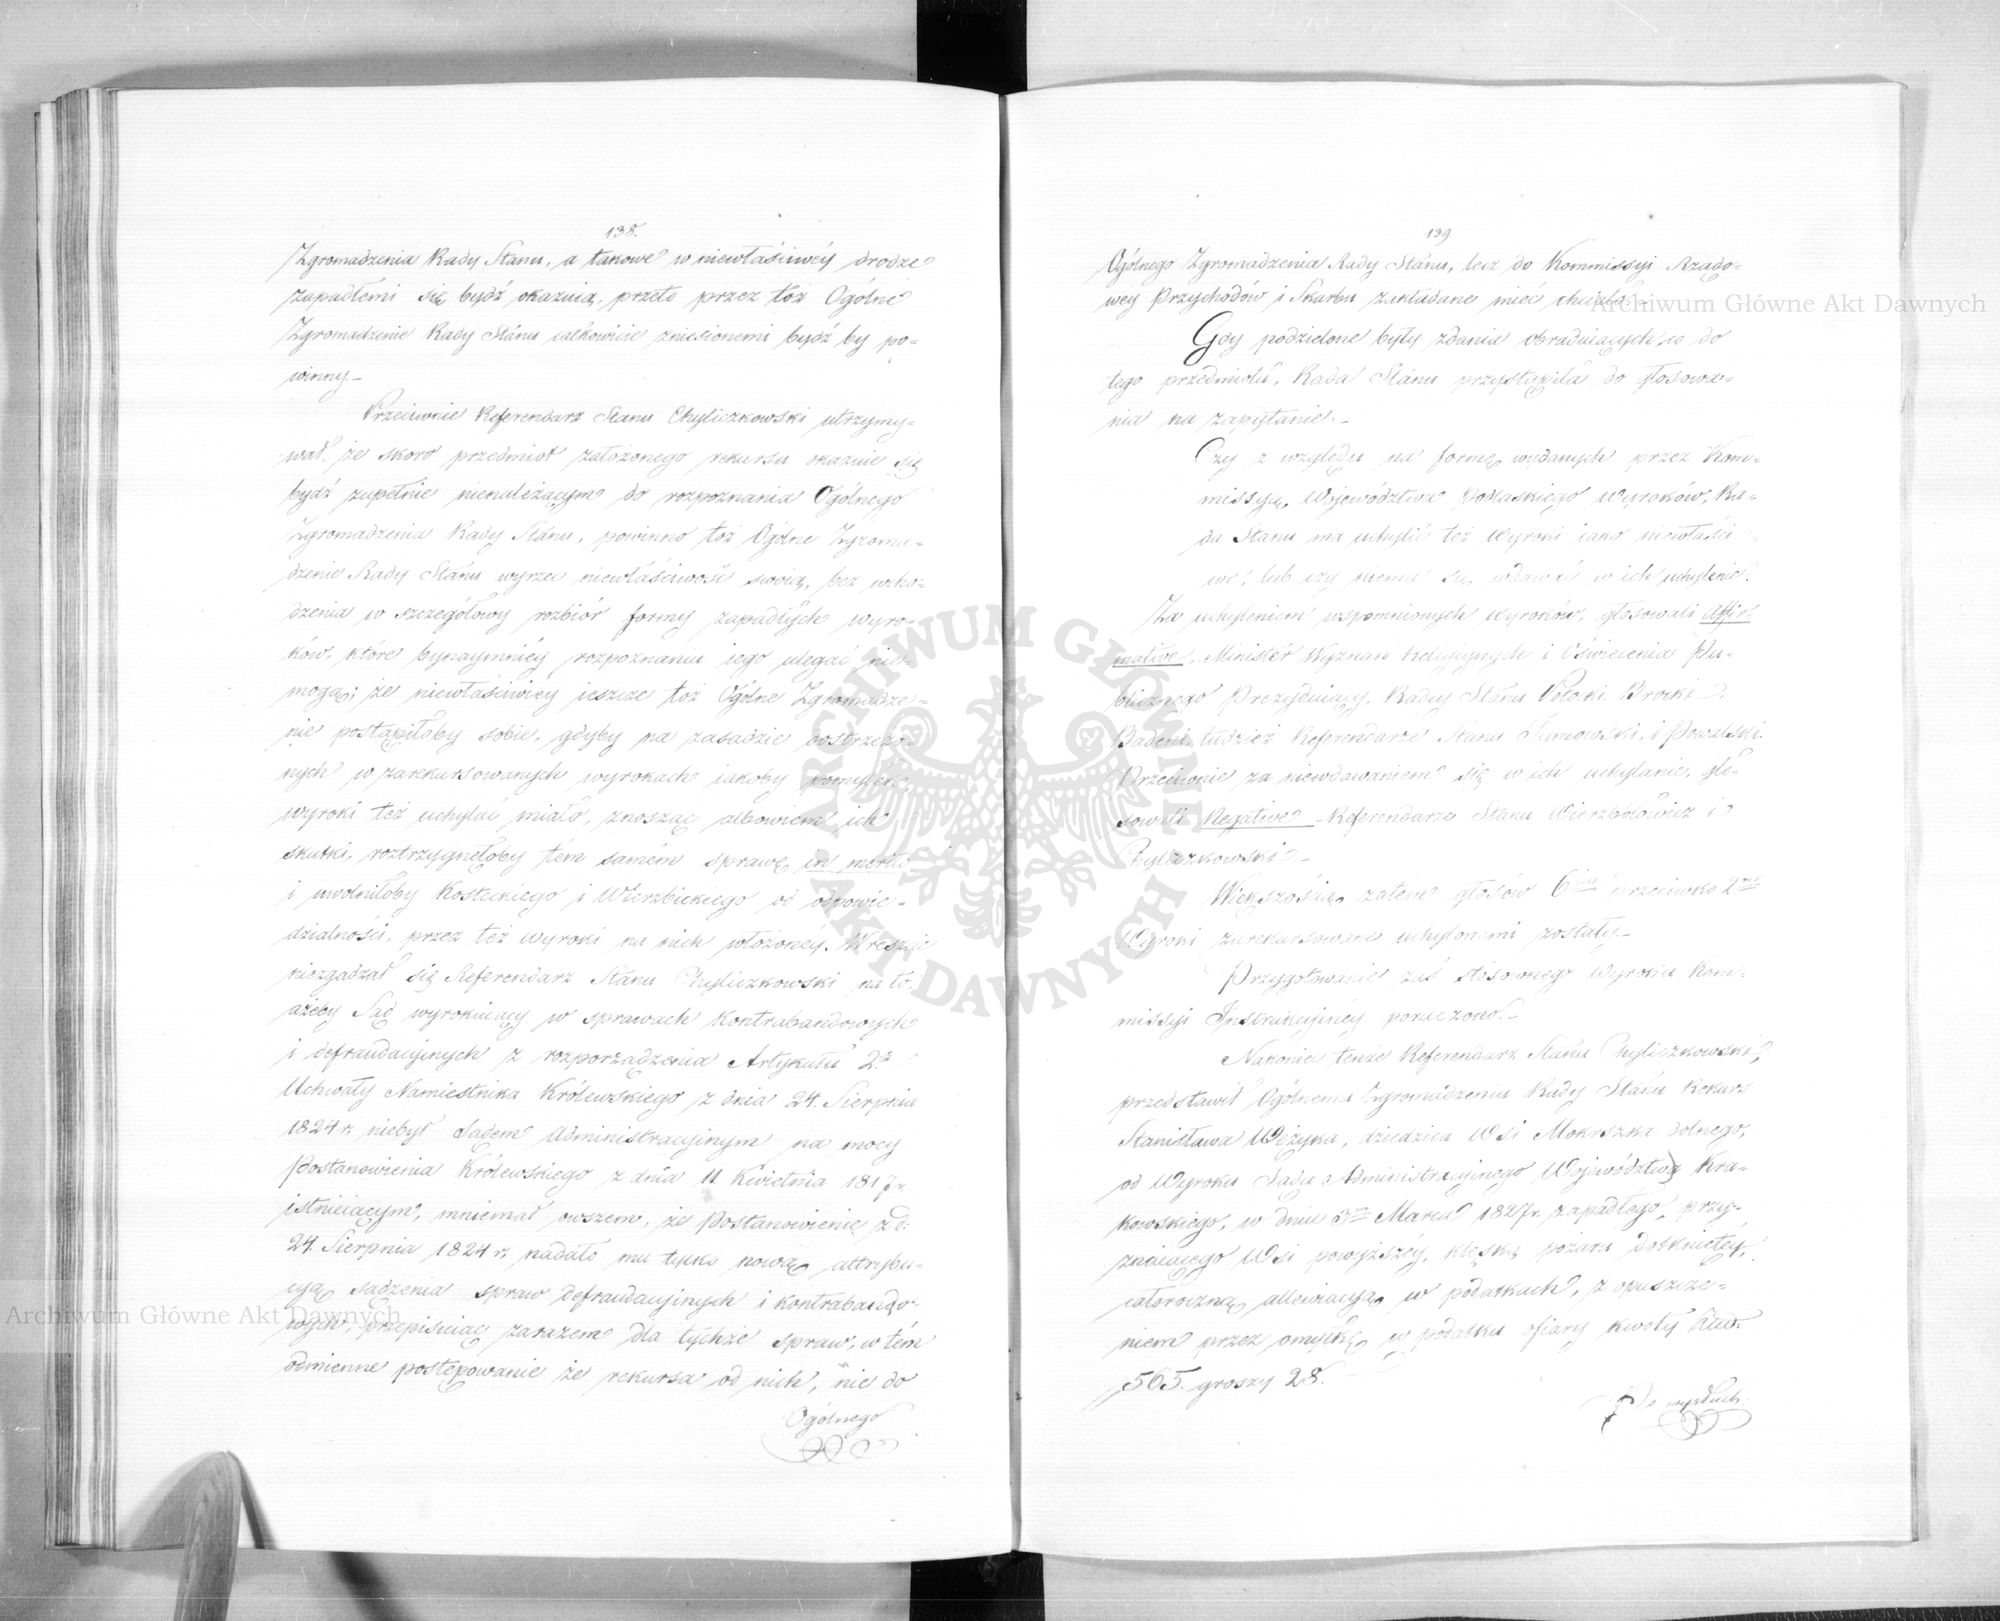 138.
Zgromadzenia Rady Stanu, a takowe w niewłaściwéy drodze
zapadłemi się bydź okazuią, przeto przez toż Ogólne
Zgromadzenie Rady Stanu całkowicie zniesionemi bydź by po-
winny.-
Przeciwnie Referendarz Stanu Chyliczkowski utrzymy-
wał, że skoro przedmiot założonego rekursu okazuie się
bydź zupełnie nienależącym do rozpoznania Ogólnego
Zgromadzenia Rady Stanu, powinno toż Ogólne Zgroma-
dzenie Rady Stanu wyrzec niewłaściwość swoią, bez wcho-
dzenia w szczegółowy rozbiór formy zapadłych wyro-
ków, które bynaymniéy rozpoznaniu iego ulegać nie-
mogą; że niewłaściwiey ieszcze toż Ogólne Zgromadze-
nie postąpiłoby sobie, gdyby na zasadzie dostrzeżo-
nych w zarekursowanych wyrokach iakoby pomyłek,
wyroki też uchylać miało, znosząc albowiem ich
skutki, roztrzygnęłoby tém samém sprawę in merito
i uwolniłoby Kosteckiego i Wierzbickiego od odpowie-
dzialności, przez też wyroki na nich włożonéy. Wreszcie
niezgadzał się Referendarz Stanu Chyliczkowski na to,
ażeby Sąd wyrokuiący w sprawach kontrabandowych
i defraudacyinych z rozporządzenia Artykułu 2go
Uchwały Namiestnika Królewskiego z dnia 24. Sierpnia
1824 r. niebył Sądem Administracyinym na mocy
Postanowienia Królewskiego z dnia 11 Kwietnia 1817 r.
istnieiącym, mniemał owszem, że Postanowienie z d.
24. Sierpnia 1824 r. nadało mu tylko nową attrybu-
cyą sądzenia spraw defraudacyinych i kontrabando-
wych, przepisuiąc zarazem dla tychże spraw, w tém
odmienne postępowanie że rekursa od nich, nie do
Ogólnego
139
Ogólnego Zgromadzenia Rady Stanu, lecz do Kommissyi Rządo-
wey Przychodów i Skarbu zakładane mieć chciało.-
Gdy podzielone były zdania obraduiących co do
tego przedmiotu, Rada Stanu przystąpiła do głosowa-
nia na zapytanie.-
Czy z względu na formę wydanych przez Kom-
missyą Województwa Podlaskiego Wyroków, Ra-
da Stanu ma uchylić też Wyroki iako niewłaści-
we, lub czy niema się wdawać w ich uchylenie.
Za uchyleniem wspomnionych wyroków, głosowali Affir-
mative, Minister Wyznań Religiynych i Oświecenia Pu-
blicznego Prezyduiący, Radcy Stanu Potocki, Brocki
Badeni, tudzież Referendarze Stanu Tumowski, i Powalski.
Przeciwnie za niewdawaniem się w ich uchylanie, gło-
sowali Negative Referendarze Stanu Wierzbołowicz i
Chyliczkowski.-
Większością zatém głosów 6ciu przeciwko 2m
Wyroki zarekursowane uchylonemi zostały.-
Przygotowanie zaś stosownego Wyroku Kom-
missyi Instrukcyinéy poruczono.-
Nakoniec tenże Referendarz Stanu Chyliczkowski,
przedstawił Ogólnemu Zgromadzeniu Rady Stanu Rekurs
Stanisława Wężyka, dziedzica Wsi Mokrszka dolnego,
od Wyroku Sądu Administracyinego Województwa Kra-
kowskiego, w dniu 3m Marca 1827 r. zapadłego, przy-
znaiącego Wsi powyższéy, klęską pożaru dotkniętey,
całoroczną allewiacyą w podatkach, z opuszcze-
niem przez omyłkę w podatku ofiary kwoty
565. groszy 28.
Po wysłuch.
Archiwum Główne Akt Dawnych
Archiwum Główne Akt Dawnych
ARCHIWUM GŁÓWNE
AKT DAWNYCH